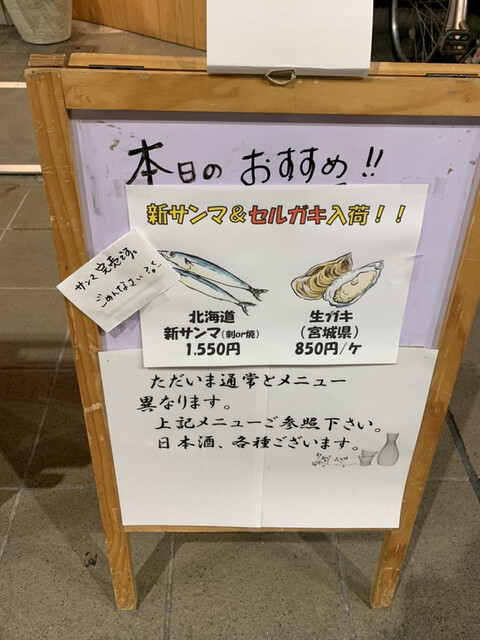 本日のおすすめ!!
新サンマ&セルガキ入荷!!
サンマ完売です。
ごめんなさい
北海道
新サンマ(刺or焼)
1.550円
生ガキ
(宮城県)
850円/ケ
ただいま通常とメニュー
異なります。
上記メニューご参照下さい。
日本酒、各種ございます。